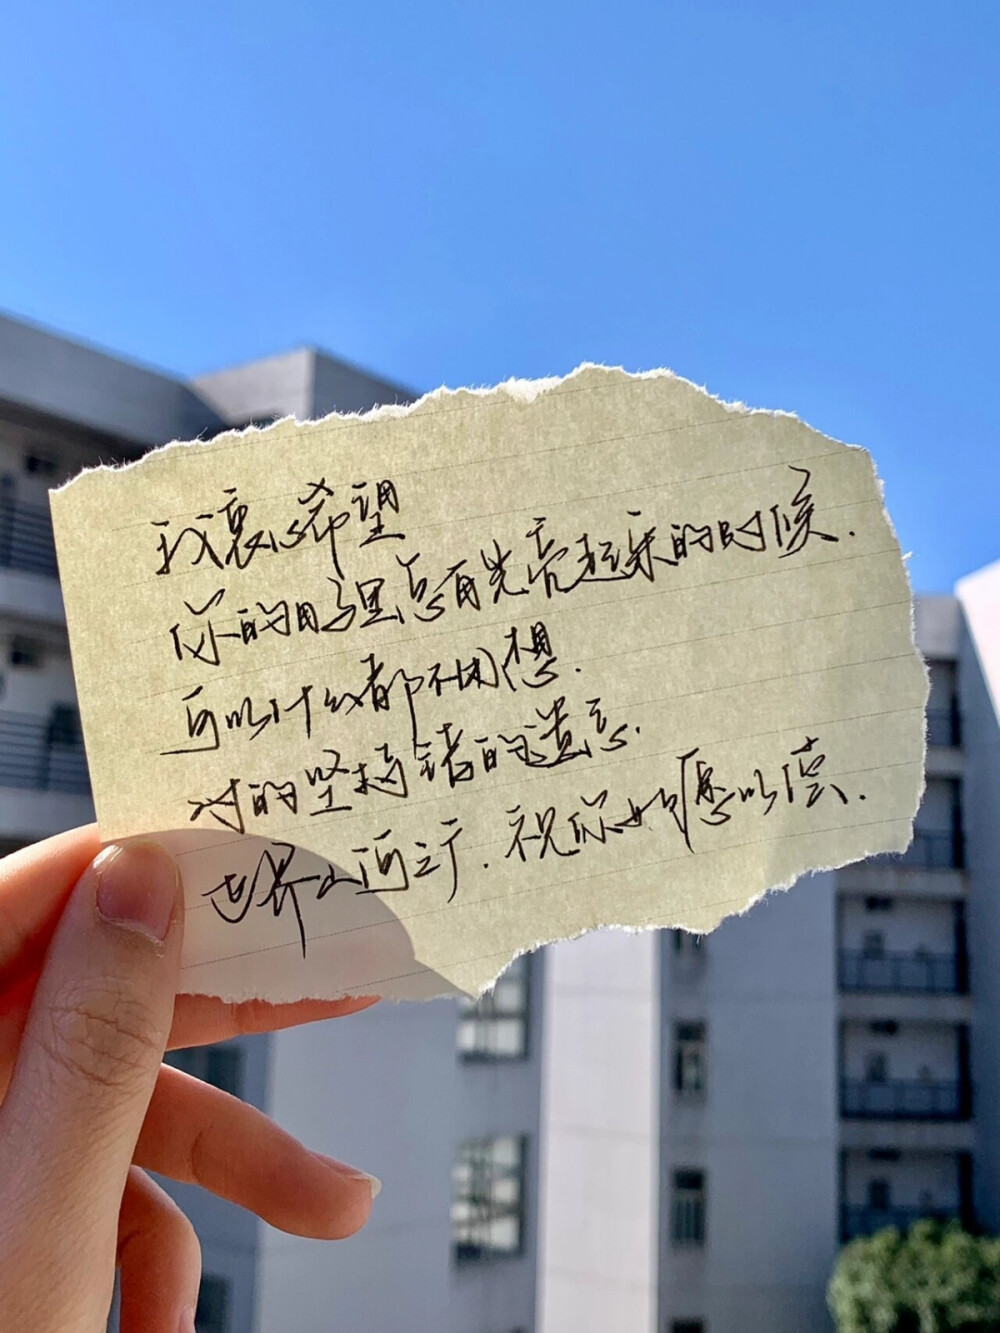 我衷心希望
你的日子里总有光亮起来的时候.
可以什么都不用想.
对的坚持错的遗忘.
世界山河之广.祝你如愿以偿.